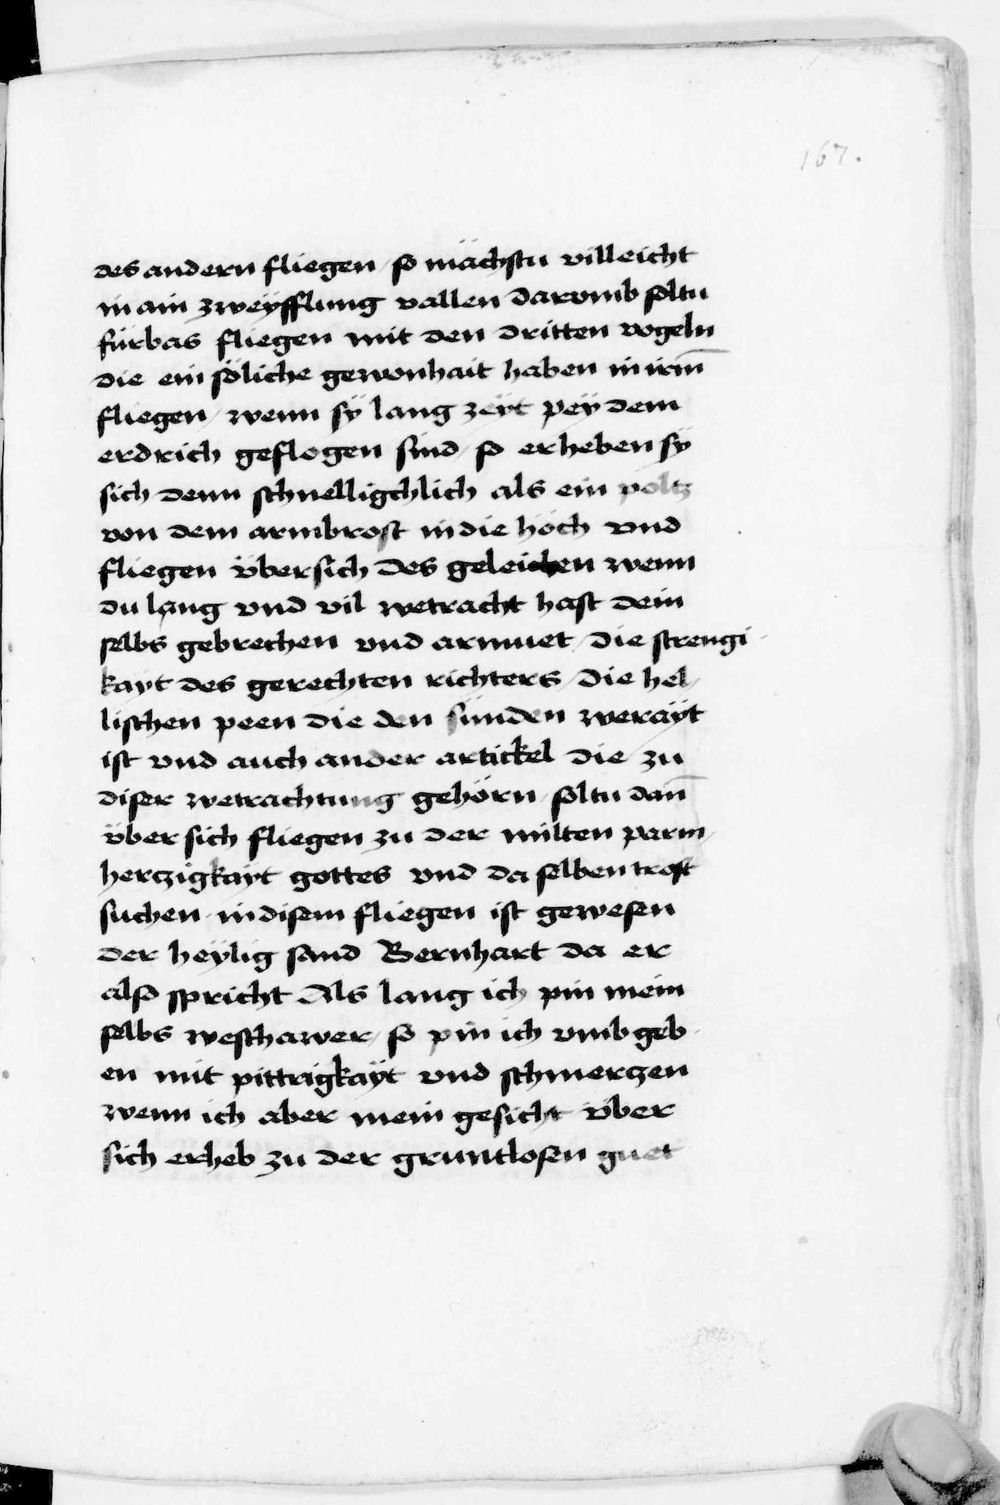 167.
des andern fliegen / so mächstu villeicht
in ain zweÿfflung vallen darvmb soltu
fürbas fliegen mit den dritten vogeln
die ein söliche gewonhait haben in irm̅
fliegen / wenn sÿ lang zeÿt peÿ dem
erdrich geflogen sind / so erheben sÿ
sich denn schnelligchlich als ein poltz
von dem armbrost in die höch vnd
fliegen v̈ber sich des geleichen wenn
du lang vnd vil wetracht hast dein
selbs gebrechen vnd armuet / die strengi-
kayt des gerechten richters / die hel-
lischen peen die den sünden weraÿt
ist vnd auch ander artickel die zu
diser wetrachtung gehörn / soltu dan̅
v̈ber sich fliegen zu der milten parm-
herczigkaÿt gottes vnd da selben trost
suchen / in disem fliegen ist gewesen
der heÿlig sand Bernhart da er
also spricht Als lang ich pin mein
selbs weschawer / so pin ich vmbgeb-
en mit pittrigkaÿt vnd schmerczen
wenn ich aber mein gesicht v̈ber
sich erheb zu der gruntlosen guet